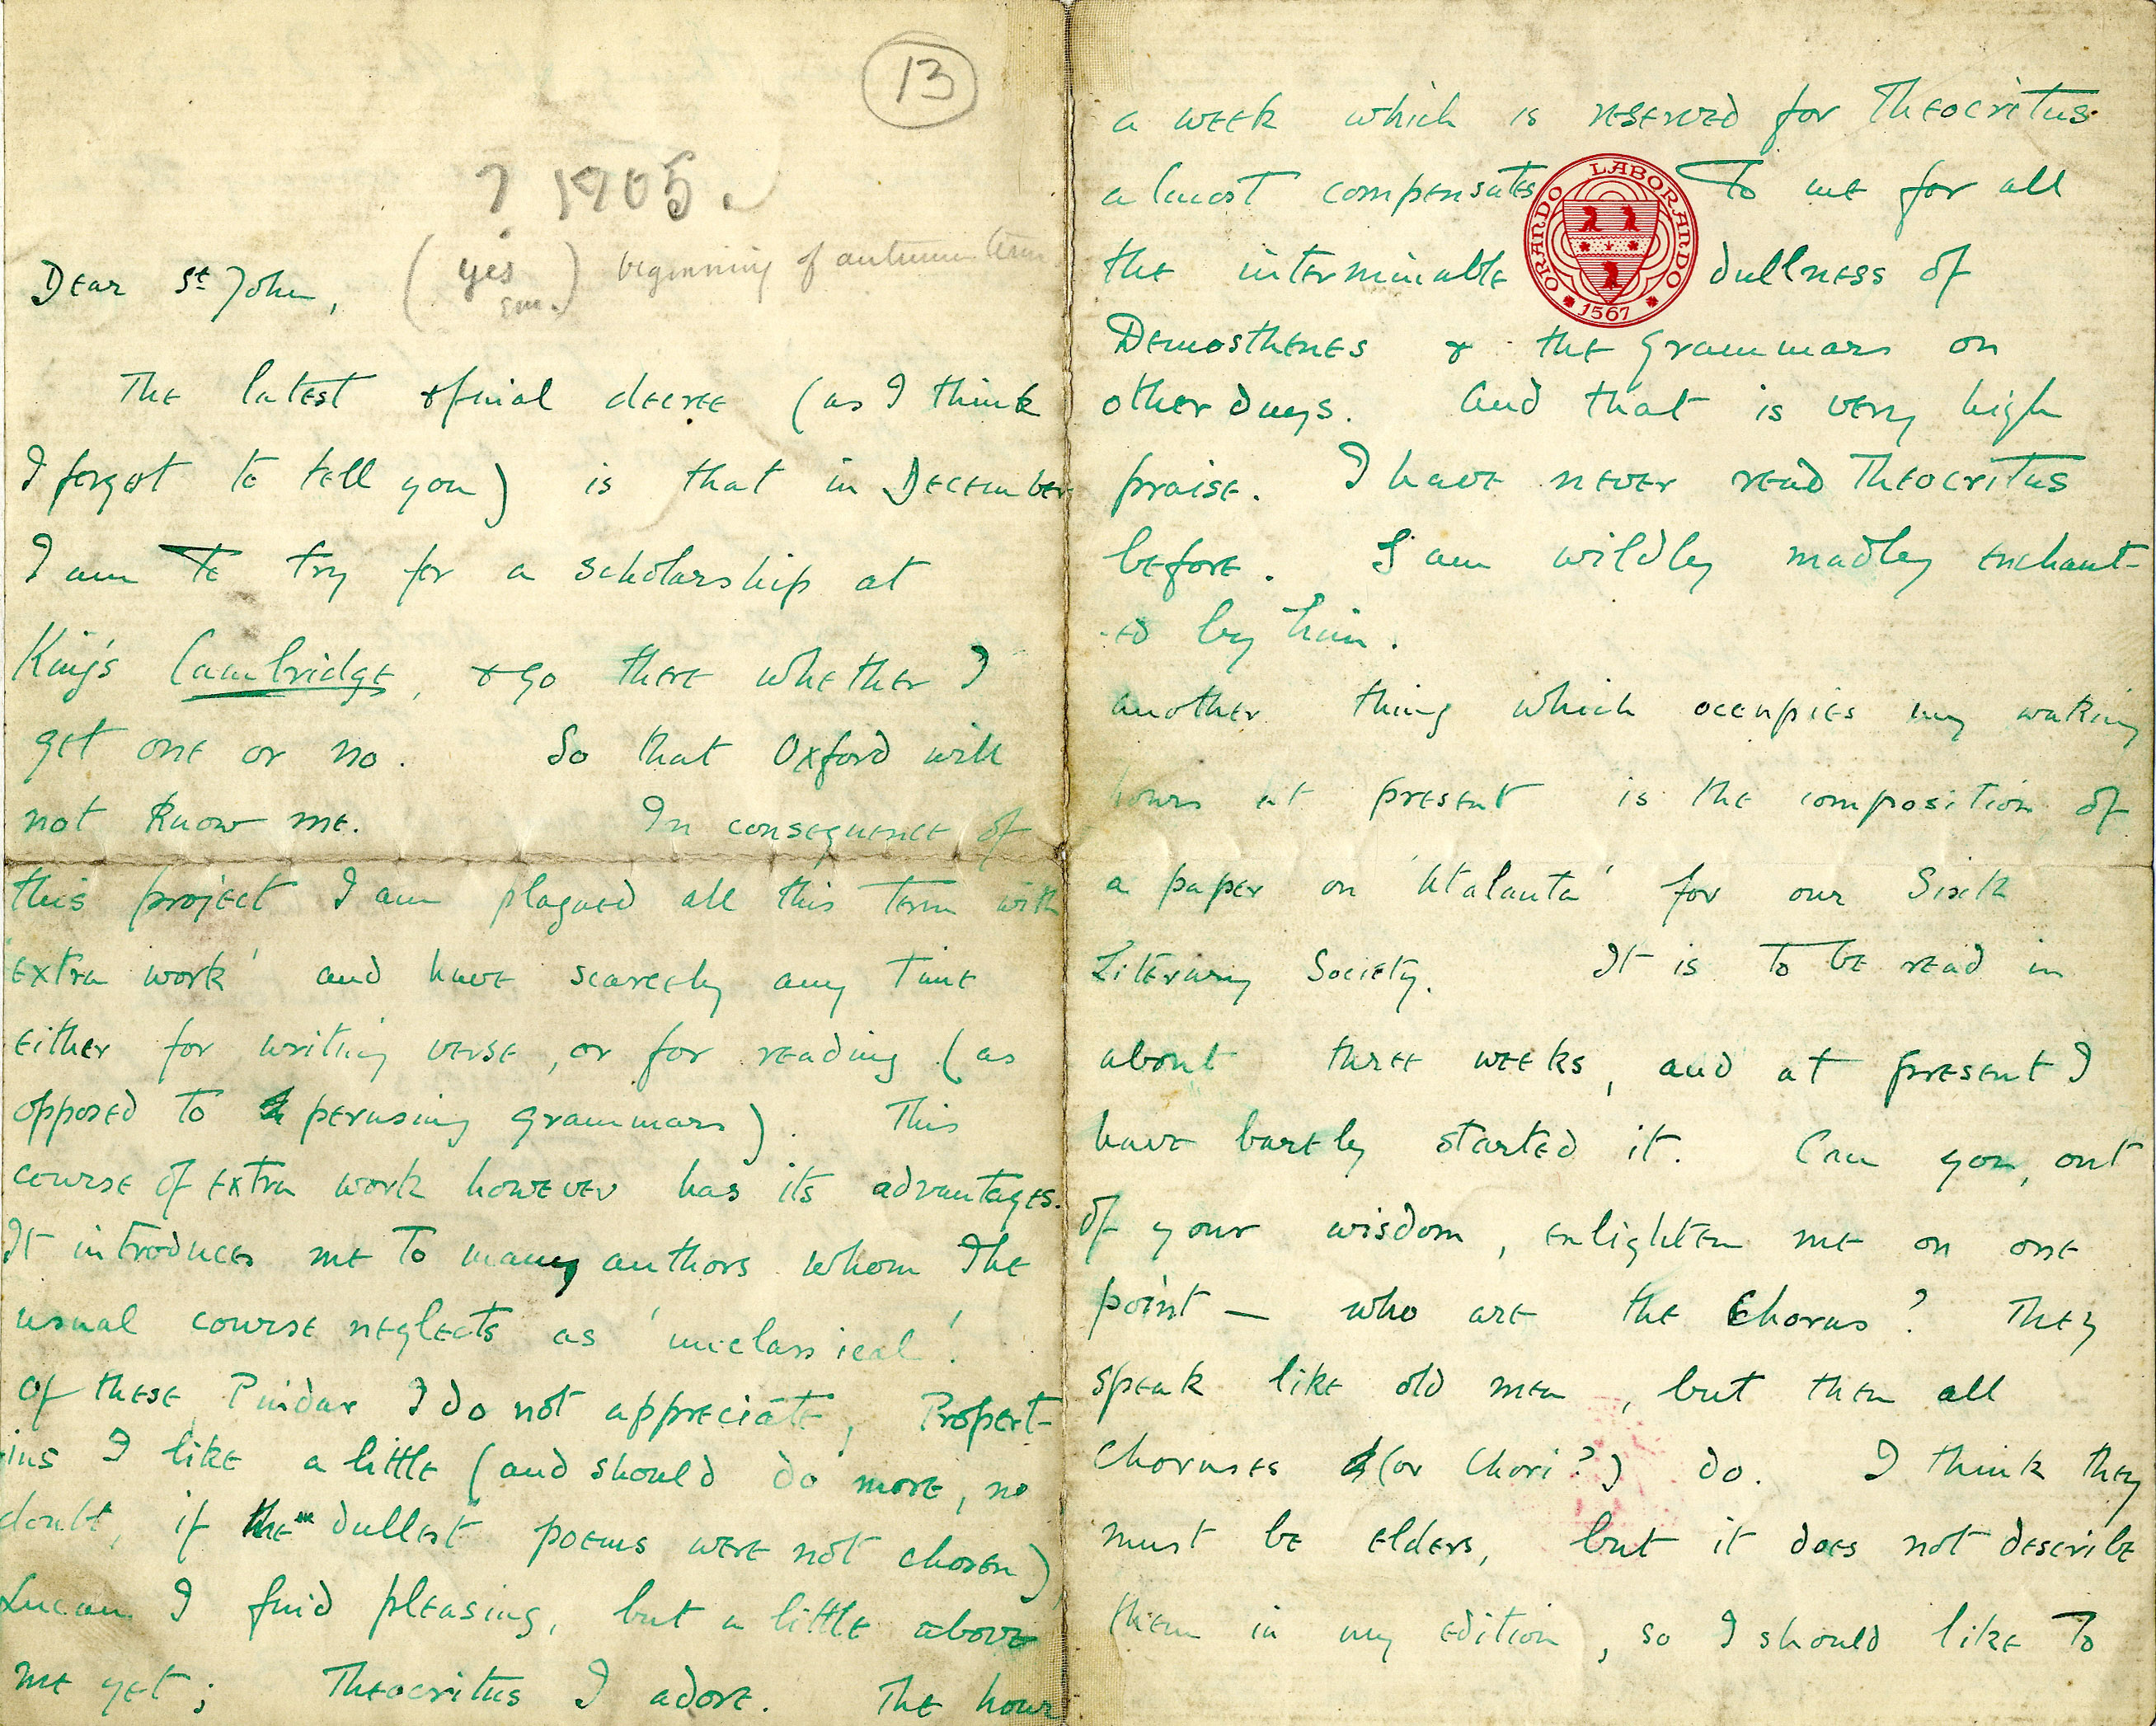 13
? 1905.
(yes
Dear St John,
beginning of autumn term
The latest official decree (as I think
I forgot to tell you) is that in December
I am to try for a scholarship at
King's Cambridge, & go there whether I
get one or no. So that Oxford will
not know me. In consequence of
this project I am plagued all this term with
'extra work' and have scarcely any time
either for writing verse, or for reading (as
opposed to perusing grammars). This
course of extra work however has its advantages.
It introduces me to many authors whom the
usual course neglects as 'unclassical'.
Of these, Pindar I do not appreciate, Propert-
ius I like a little (and should do more, no
doubt, if the dullest poems were not chosen)
Lucan I find pleasing, but a little above
me yet; Theocritus I adore. The hour
a week which is reserved for Theocritus
almost compensates to me for all
the interminable dullness of
Demosthenes & the grammars on
other days. And that is very high
praise. I have never read Theocritus
before. I am wildly madly enchant-
-ed by him.
Another thing which occupies my waking
hours at present is the composition of
a paper on 'Atalanta' for our Sixth
Literary Society. It is to be read in
about three weeks, and at present I
have barely started it. Can you, out
of your wisdom, enlighten me on one
point — who are the Chorus? They
speak like old men, but then all
Choruses (or Chori?) do. I think they
must be elders, but it does not describe
them in my edition, so I should like to
ORANDO LABORANDO
1567